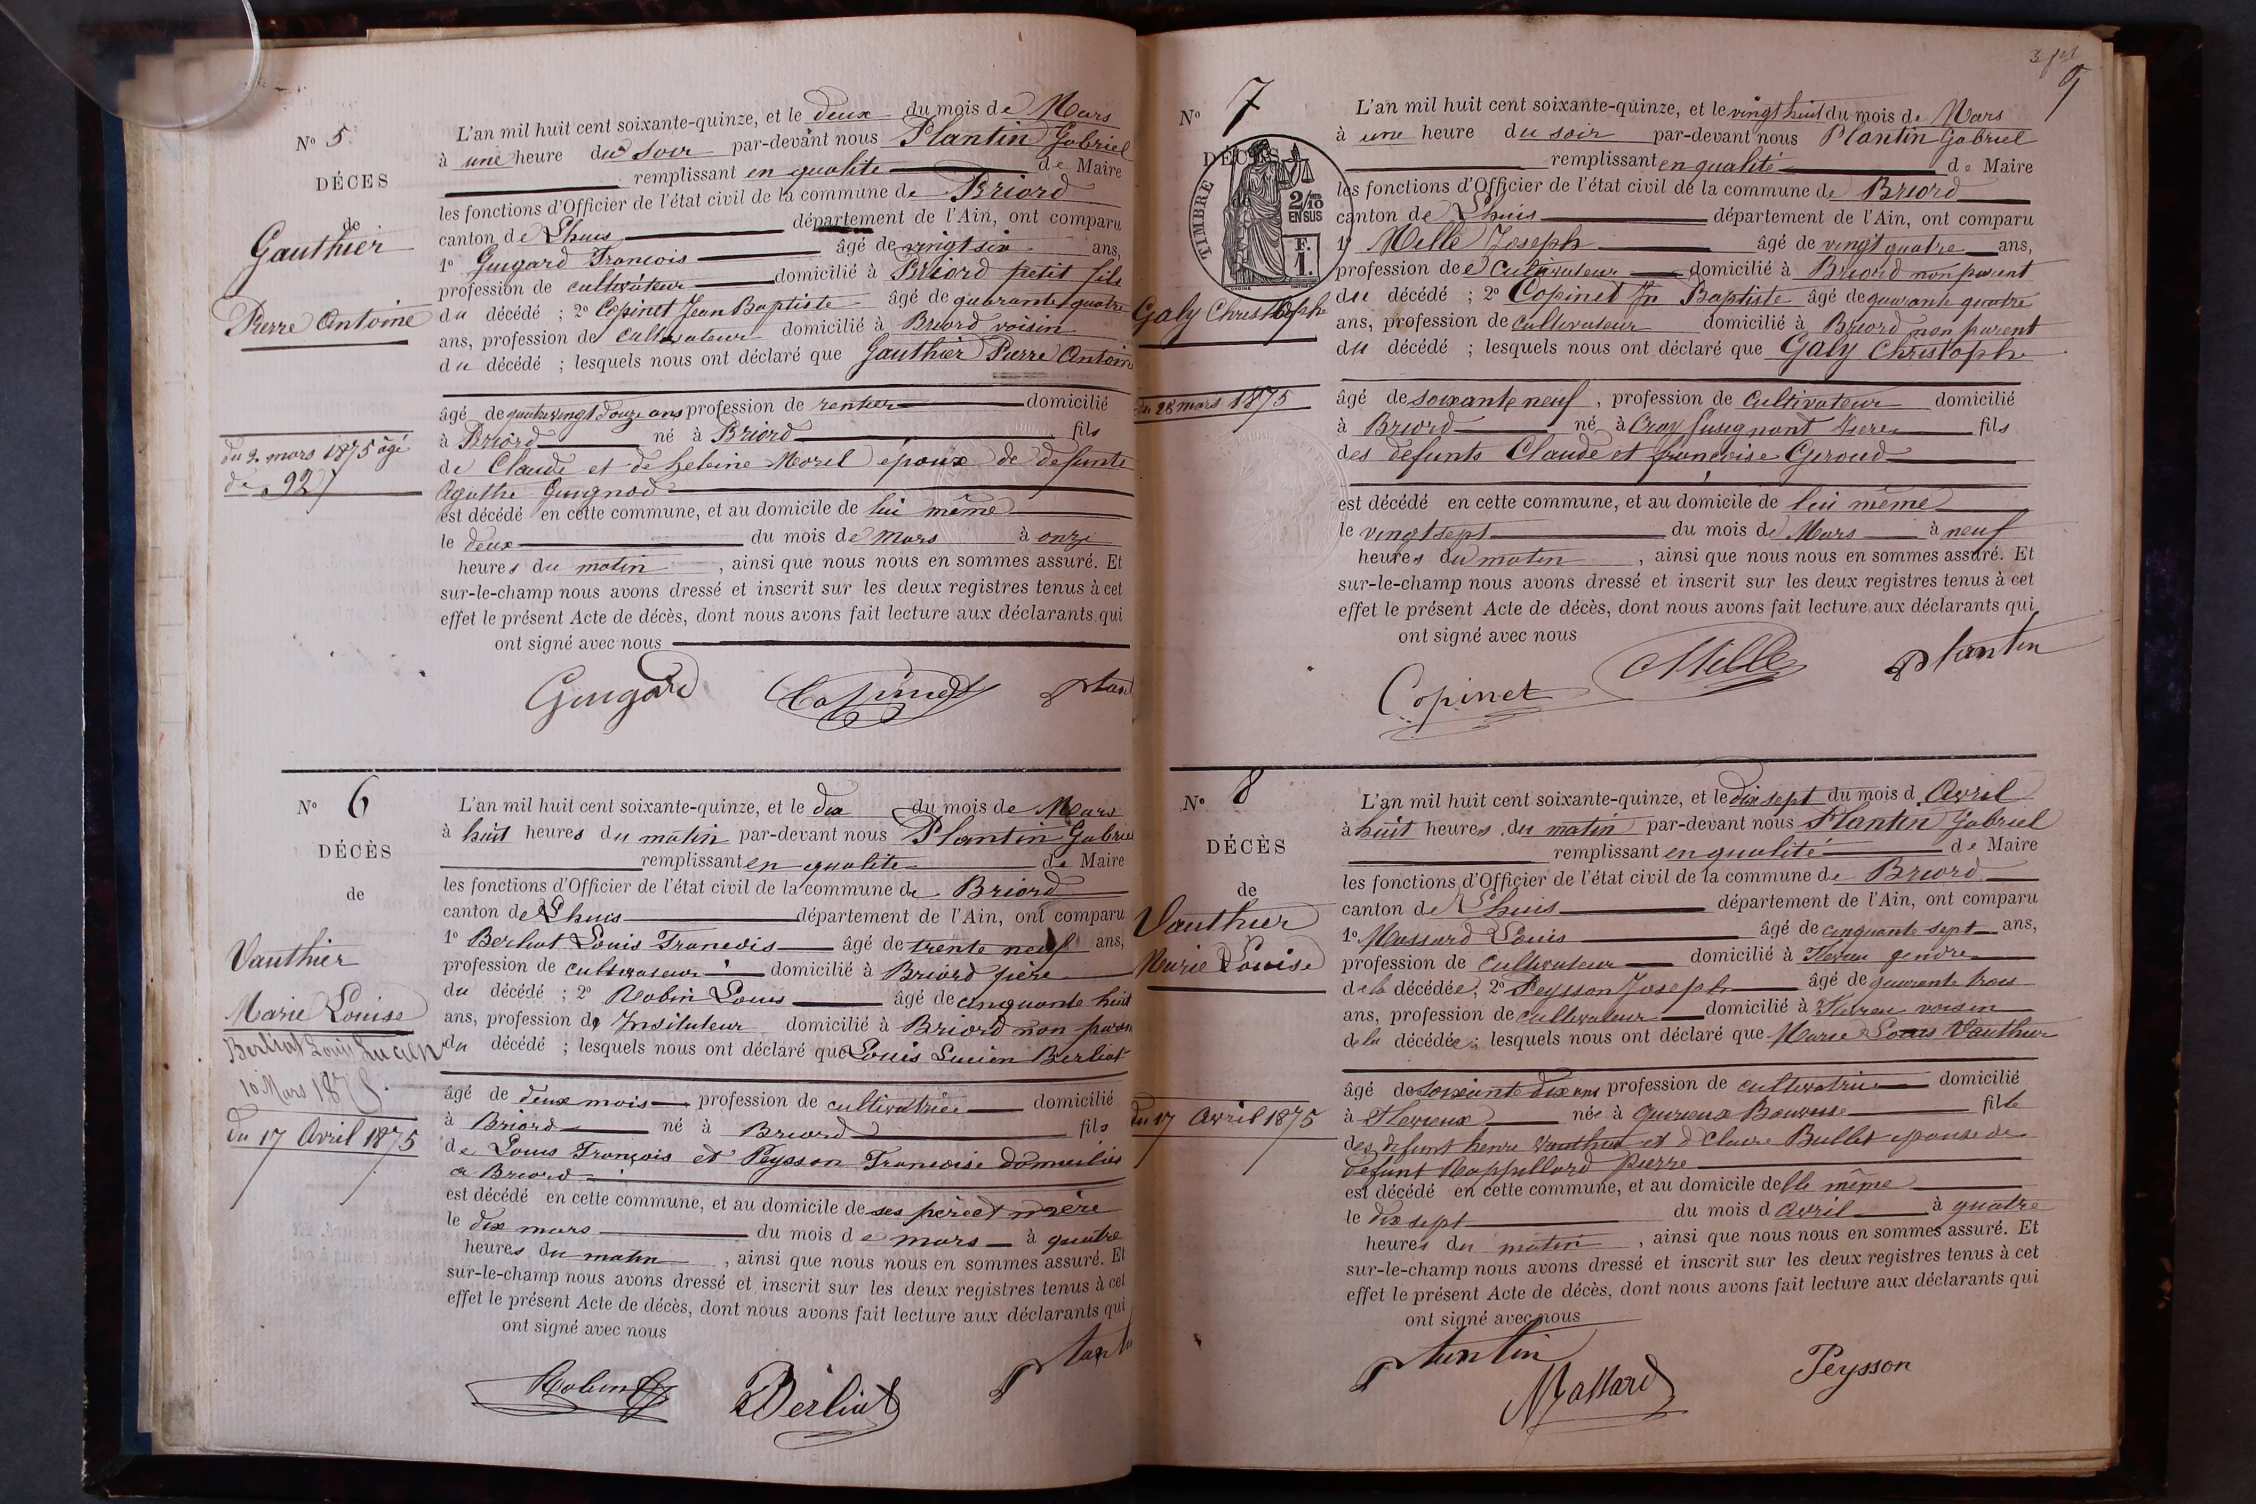 N° 5
DÉCES
de
Gauthier
Pierre Antoine
du 2 mars 1875 âgé
de 92
L'an mil huit cent soixante-quinze, et le deux du mois de Mars
à une heure du soir par-devant nous Plantin Gabriel
remplissant en qualité de Maire
les fonctions d'Officier de l'état civil de la commune de Briord
canton de Lhuis département de l'Ain, ont comparu
1° Guigard François âgé de vingt six ans,
profession de cultivateur domicilié à Briord petit fils
du décédé ; 2° Copinet Jean Baptiste âgé de quarante quatre
ans, profession de cultivateur domicilié à Briord voisin
du décédé ; lesquels nous ont déclaré que Gauthier Pierre Antoine
âgé de quatre vingt douze ans profession de rentier domicilié
à Briord né à Briord fils
de Claude et de heleine Morel époux de defunte
Agathe Guignod
est décédé en cette commune, et au domicile de lui même
le deux du mois de Mars à onze
heures du matin , ainsi que nous nous en sommes assuré. Et
sur-le-champ nous avons dressé et inscrit sur les deux registres tenus à cet
effet le présent Acte de décès, dont nous avons fait lecture aux déclarants qui
ont signé avec nous
Guigard Copinet Plant
N° 6
DÉCÈS
de
Vauthier
Marie Louise
Berliat Louis Lucien
10 Mars 1875.
du 17 Avril 1875
L'an mil huit cent soixante-quinze, et le dix du mois de Mars
à huit heures du matin par-devant nous Plantin Gabriel
remplissant en qualité de Maire
les fonctions d'Officier de l'état civil de la commune de Briord
canton de Lhuis département de l'Ain, ont comparu
1° Berliat Louis François âgé de trente neuf ans,
profession de cultivateur domicilié à Briord père
du décédé ; 2° Robin Louis âgé de cinquante huit
ans, profession de Instituteur domicilié à Briord non paren
du décédé ; lesquels nous ont déclaré que Louis Lucien Berliat
âgé de deux mois profession de cultivatrice domicilié
à Briord né à Briord fils
de Louis François et Peysson Francoise domiciliés
a Briord
est décédé en cette commune, et au domicile de ses père et mère
le dix mars du mois de mars à quatre
heures du matin , ainsi que nous nous en sommes assuré. Et
sur-le-champ nous avons dressé et inscrit sur les deux registres tenus à cet
effet le présent Acte de décès, dont nous avons fait lecture aux déclarants qui
ont signé avec nous
Robin Berliat Plantin
N° 7
DÉCÈS
de
TIMBRE
2/10
EN SUS
F.
1.
Galy Christophe
du 28 mars 1875
L'an mil huit cent soixante-quinze, et le vingt huit du mois de Mars
à une heure du soir par-devant nous Plantin Gabriel
remplissant en qualité de Maire
les fonctions d'Officier de l'état civil de la commune de Briord
canton de Lhuis département de l'Ain, ont comparu
1° Melle Joseph âgé de vingt quatre ans,
profession de Cultivateur domicilié à Briord non parent
du décédé ; 2° Copinet Jn Baptiste âgé de quarante quatre
ans, profession de cultivateur domicilié à Briord non parent
du décédé ; lesquels nous ont déclaré que Galy Christophe
âgé de soixante neuf , profession de Cultivateur domicilié
à Briord né à Isere fils
des defunts Claude et françoise Geroud
est décédé en cette commune, et au domicile de lui même
le vingt sept du mois de Mars à neuf
heures du matin , ainsi que nous nous en sommes assuré. Et
sur-le-champ nous avons dressé et inscrit sur les deux registres tenus à cet
effet le présent Acte de décès, dont nous avons fait lecture aux déclarants qui
ont signé avec nous
Copinet Melle Plantin
N° 8
DÉCÈS
de
Vauthier
Marie Louise
du 17 Avril 1875
L'an mil huit cent soixante-quinze, et le dix sept du mois d Avril
à huit heures du matin par-devant nous Plantin Gabriel
remplissant en qualité de Maire
les fonctions d'Officier de l'état civil de la commune de Briord
canton de Lhuis département de l'Ain, ont comparu
1° Massard Louis âgé de cinquante sept ans,
profession de Cultivateur domicilié à gendre
de la décédée, 2° Peysson Joseph âgé de quarante trois
ans, profession de cultivateur domicilié à voisin
de la décédée ; lesquels nous ont déclaré que Marie Louis Vauthier
âgé de soixante dix ans profession de cultivatrice domicilié
à née à fille
des defunt henri Vauthier et d Claire Bullet epouse de
defunt Pierre
est décédé en cette commune, et au domicile delle même
le dix sept du mois d avril à quatre
heures du matin , ainsi que nous nous en sommes assuré. Et
sur-le-champ nous avons dressé et inscrit sur les deux registres tenus à cet
effet le présent Acte de décès, dont nous avons fait lecture aux déclarants qui
ont signé avec nous
Plantin Massard Peysson